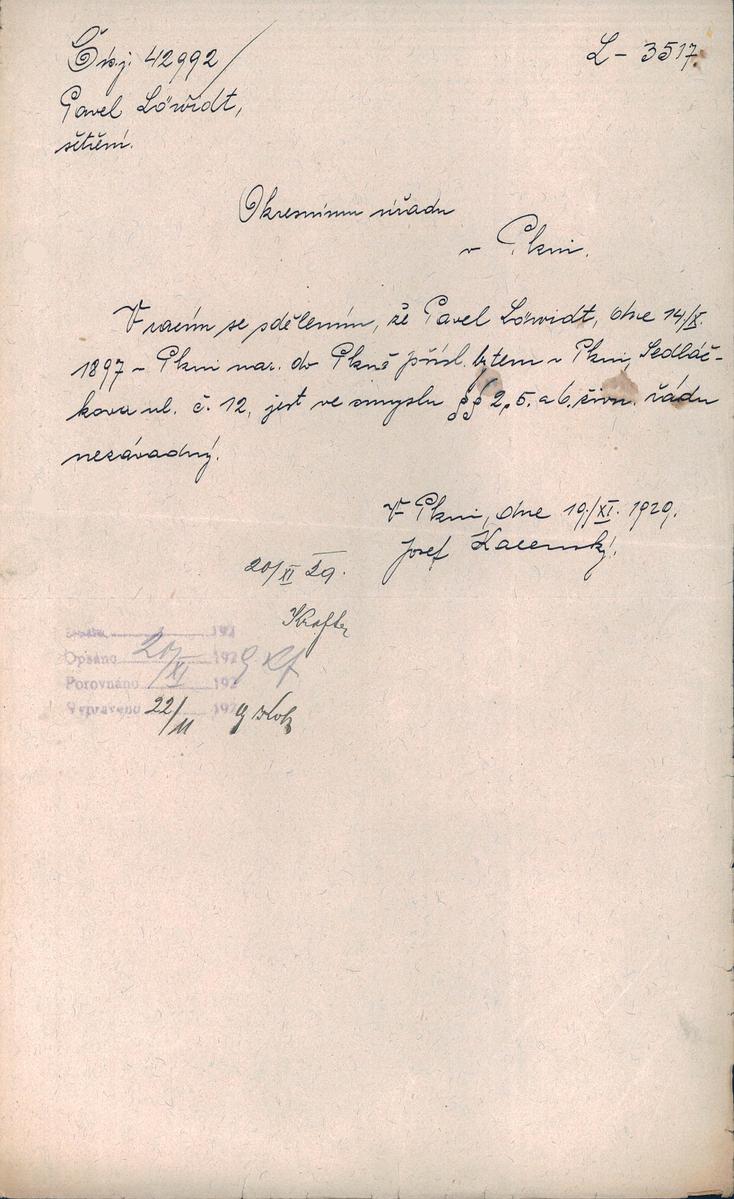 Č.j. 42992
L - 3517.
Pavel Löwidt,
šetření.
Okresnímu úřadu
v Plzni.
Vracím se sdělením, že Pavel Löwidt, dne 14/X.
1897 v Plzni nar. do Plzně přísl. bytem v Plzni, Sedláč-
kova ul. č. 12, jest ve smyslu §§ 2, 5. a 6. živn. řádu
nezávadný.
V Plzni, dne 19/XI. 1929.
Josef
20/XI 29.
192
Opsáno 20/XI 1929
Porovnáno 192
Vypraveno 22/11 1929